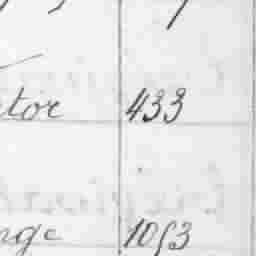 tor 433
nge 1053